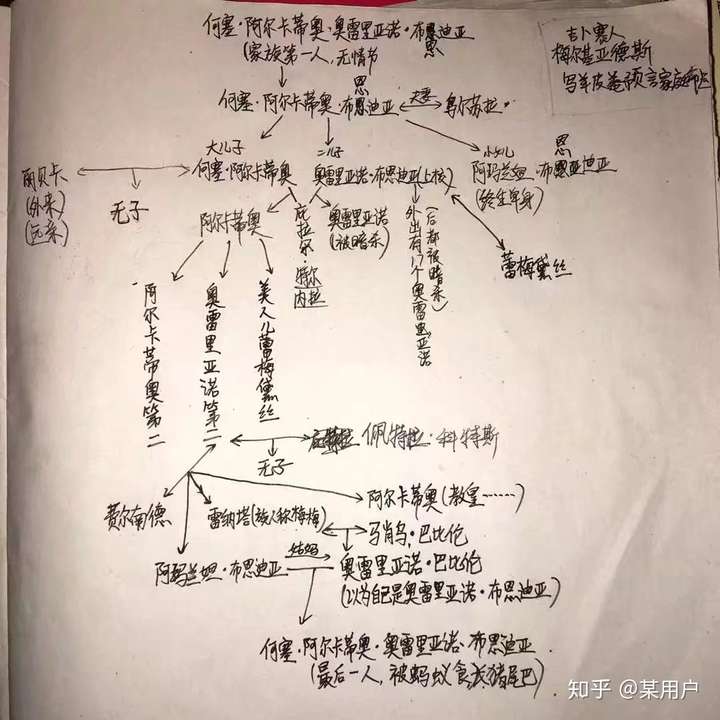 何塞·阿尔卡蒂奥·奥雷里亚诺·布恩迪亚
恩
(家族第一人,无情节)
吉卜赛人
梅尔基亚德斯
写羊皮卷预言家庭布
恩
何塞·阿尔卡蒂奥·布恩迪亚
夫妻
乌尔苏拉
丽贝卡
(外来)
(远亲)
无子
大儿子
何塞·阿尔卡蒂奥
二儿子
奥雷里亚诺·布恩迪亚(上校)
小女儿
恩
阿玛兰妲·布恩迪亚
(终生单身)
阿尔卡蒂奥
庇拉尔·特尔内拉
奥雷里亚诺
(被暗杀)
外出有17个奥雷里亚诺
(后都被暗杀)
蕾梅黛丝
阿尔卡蒂奥第二
奥雷里亚诺第二
美人儿蕾梅黛丝
无子
佩特拉·科特斯
费尔南德
雷纳塔(被人称梅梅)
阿尔卡蒂奥(教皇……)
马肖鸟·巴比伦
阿玛兰妲·布恩迪亚
结婚
奥雷里亚诺·巴比伦
(以为自己是奥雷里亚诺·布恩迪亚)
何塞·阿尔卡蒂奥·奥雷里亚诺·布恩迪亚
(最后一人,被蚂蚁食长猪尾巴)
知乎 @某用户